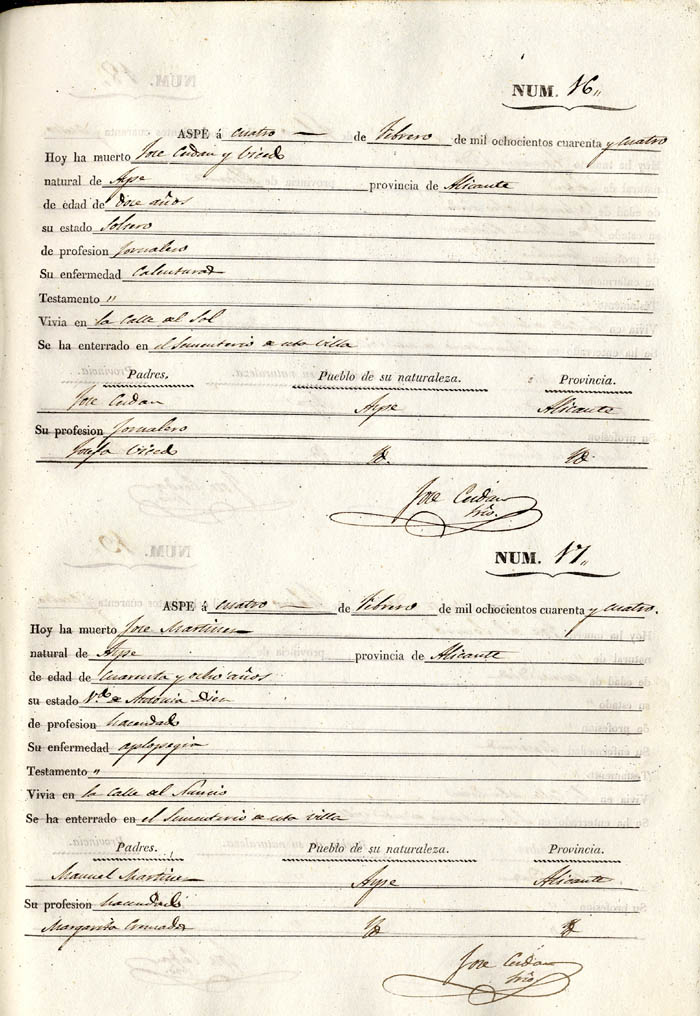 NUM. 16,,
ASPE á cuatro — de Febrero de mil ochocientos cuarenta y cuatro
Hoy ha muerto Jose Cerdan y Vicedo
natural de Aspe provincia de Alicante
de edad de doce años
su estado Soltero
de profesion Jornalero
Su enfermedad Calenturas
Testamento "
Vivia en la Calle del Sol
Se ha enterrado en el Sementerio de esta villa
Padres. Pueblo de su naturaleza. Provincia.
Jose Cerdan Aspe Alicante
Su profesion Jornalero
Josefa Vicedo Yd. Yd.
Jose Cerdan
Srio.
NUM. 17,,
ASPE á cuatro — de Febrero de mil ochocientos cuarenta y cuatro.
Hoy ha muerto Jose Martinez
natural de Aspe provincia de Alicante
de edad de cuarenta y ocho años
su estado Vdo. de Antonia Diez
de profesion hacendado
Su enfermedad aplopegia
Testamento "
Vivia en la Calle del Nuncio
Se ha enterrado en el Sementerio de esta villa
Padres. Pueblo de su naturaleza. Provincia.
Manuel Martinez Aspe Alicante
Su profesion hacendado
Margarita Yd Yd
Jose Cerdan
Srio